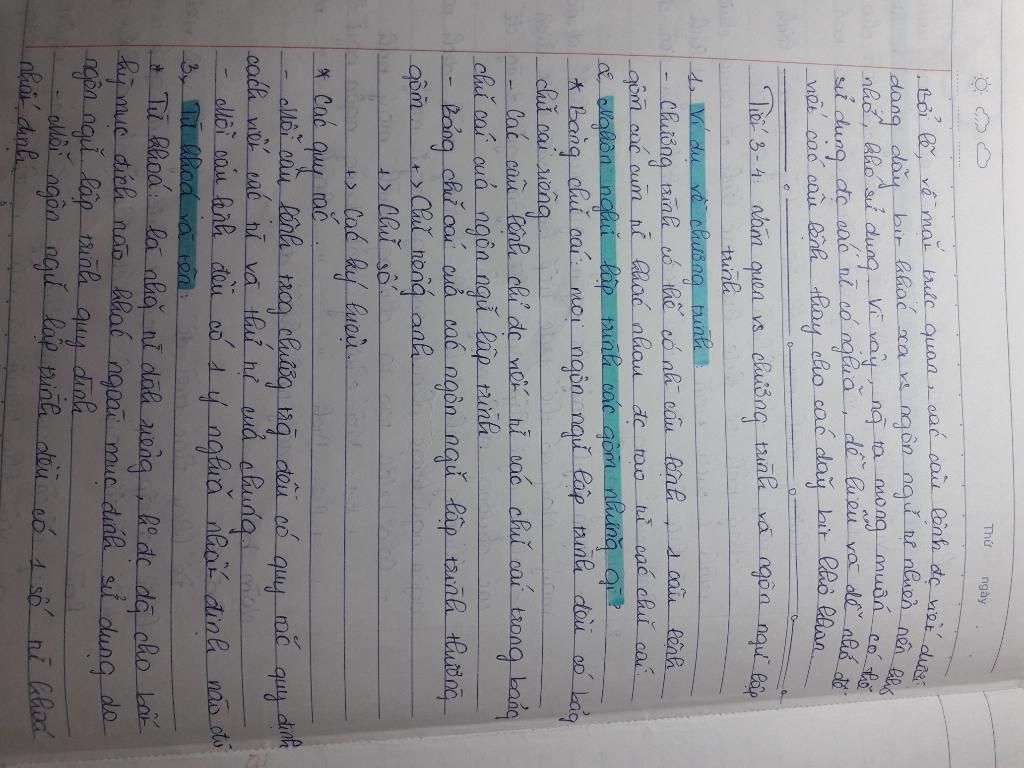 Thứ ngày
- Bởi lẽ, về mặt trực quan n các câu lệnh đc viết dưới
dạng dãy bit khác xa vs ngôn ngữ tự nhiên nên khó
nhớ, khó sử dụng. Vì vậy, ng ta mong muốn có thể
sử dụng đc các từ có nghĩa, dễ hiểu và dễ nhớ để
với các câu lệnh thay cho các dãy bit khô khan
Tiết 3-4: Làm quen vs chương trình và ngôn ngữ lập
trình
1, Ví dụ về chương trình:
- Chương trình có thể có nh câu lệnh, 1 câu lệnh
gồm các cụm từ khác nhau đc tạo từ các chữ cái
2, Ngôn ngữ lập trình các gồm những gì?
* Bảng chữ cái: mọi ngôn ngữ lập trình đều có bảng
chữ cái riêng
- Các câu lệnh chỉ đc viết từ các chữ cái trong bảng
chữ cái của ngôn ngữ lập trình.
- Bảng chữ cái của các ngôn ngữ lập trình thường
gồm ↳ Chữ tiếng anh
↳ Chữ số
↳ Các ký hiệu.
* Các quy tắc
- Mỗi câu lệnh trog chương trìh đều có quy tắc quy định
cách viết các từ và thứ tự của chúng
- Mỗi câu lệnh đều có 1 ý nghĩa nhất định nào đó
3, Từ khoá và tên:
* Từ khoá: là nhữg từ dành riêng, k đc dùg cho bất
kỳ mục đích nào khác ngoài mục đích sử dụng do
ngôn ngữ lập trình quy định
- Mỗi ngôn ngữ lập trình đều có 1 số từ khoá
nhất định